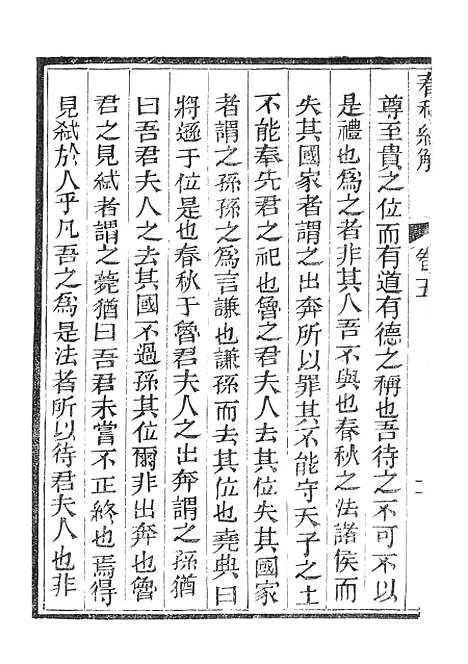 春秋經解
卷五
尊至貴之位而有道有德之稱也吾待之不可不以
是禮也爲之者非其人吾不與也春秋之法諸侯而
失其國家者謂之出奔所以罪其不能守天子之土
不能奉先君之祀也魯之君夫人去其位失其國家
者謂之孫孫之爲言謙也謙孫而去其位也堯典曰
將遜于位是也春秋于魯君夫人之出奔謂之孫猶
曰吾君夫人之去其國不過孫其位爾非出奔也魯
君之見弑者謂之薨猶曰吾君未嘗不正終也焉得
見弑於人乎凡吾之爲是法者所以待君夫人也非